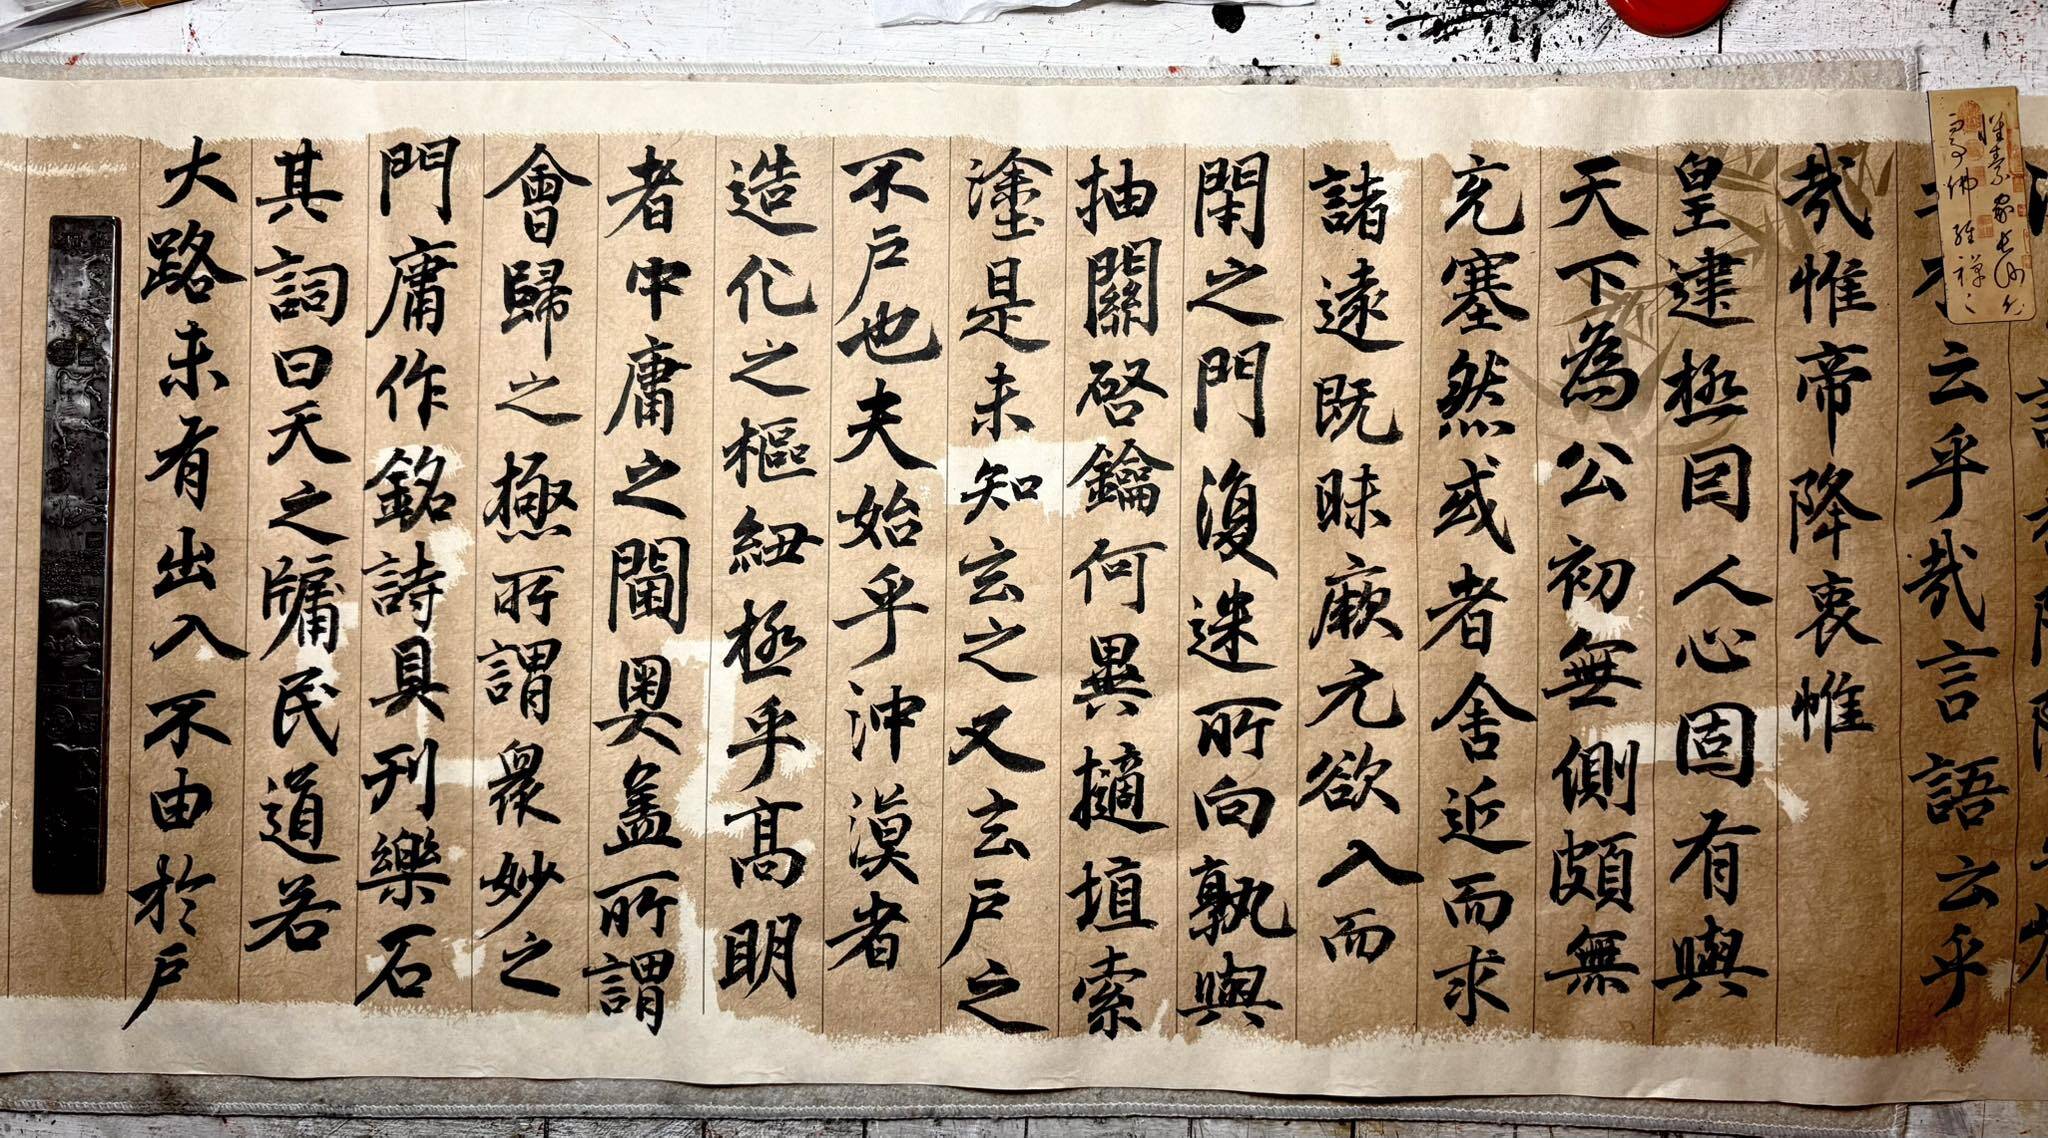 云乎哉言語云乎
哉惟帝降衷惟
皇建極因人心固有與
天下為公初無側頗無
充塞然或者舍近而求
諸遠既昧厥元欲入而
閑之門復迷所向孰與
抽關啓鑰何異擿埴索
塗是未知玄之又玄戶之
不戶也夫始乎沖漠者
造化之樞紐極乎高明
者中庸之閫奧盖所謂
會歸之極所謂衆妙之
門庸作銘詩具刊樂石
其詞曰天之牖民道若
大路未有出入不由於戶